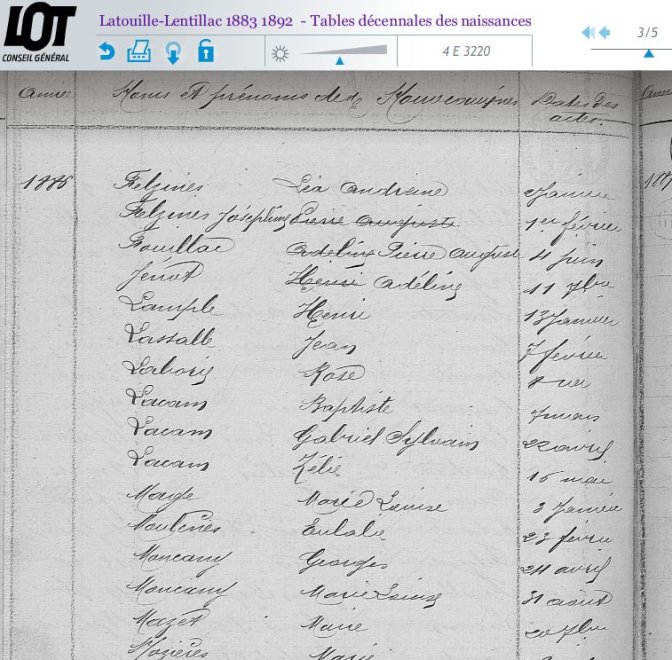 LOT
CONSEIL GÉNÉRAL
Latouille-Lentillac 1883 1892 - Tables décennales des naissances
4 E 3220
3/5
Année Noms et prénoms des Nouveaux-nés Dates des
actes.
1886 Felzines Léa Andreine 2 Janvier
Felzines Joséphine Pierre Auguste 1er février
Fouillac Adeline Pierre Auguste 4 juin
Jénot Henri Adéline 11 7bre
Lample Henri 13 Janvier
Lassalle Jean 7 février
Laborie Rose
Lacam Baptiste 7 mars
Lacam Gabriel Sylvain 22 avril
Lacam Zélie 15 mai
Marie Louise 3 Janvier
Moulènes Eulalie 23 février
Moncany Georges 24 avril
Moncany Marie Louise 31 août
Mazet Marie 20 7bre
Mozières Marie